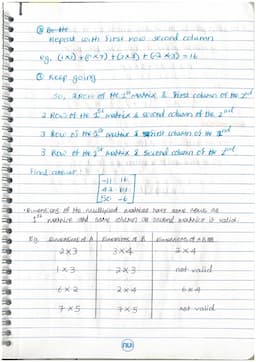 Repeat with first row second column
eg. (1×2) + (0×7) + (2×3) + (-2×3) = 16
Keep going
So, 2 Row of the 1st Matrix & first column of the 2nd
2 Row of the 1st matrix & second column of the 2nd
3 Row of the 1st matrix & first column of the 2nd
3 Row of the 1st Matrix & second column of the 2nd
Final answer:
-11 16
50 -6
Dimensions of the multiplied matrices have same rows as
1st matrix and same column as second matrix is valid.
Eg. Dimensions of A Dimensions of B Dimensions of
2×3 3×4 2×4
1×3 2×3 not valid
6×2 2×4 6×4
7×5 7×5 not valid